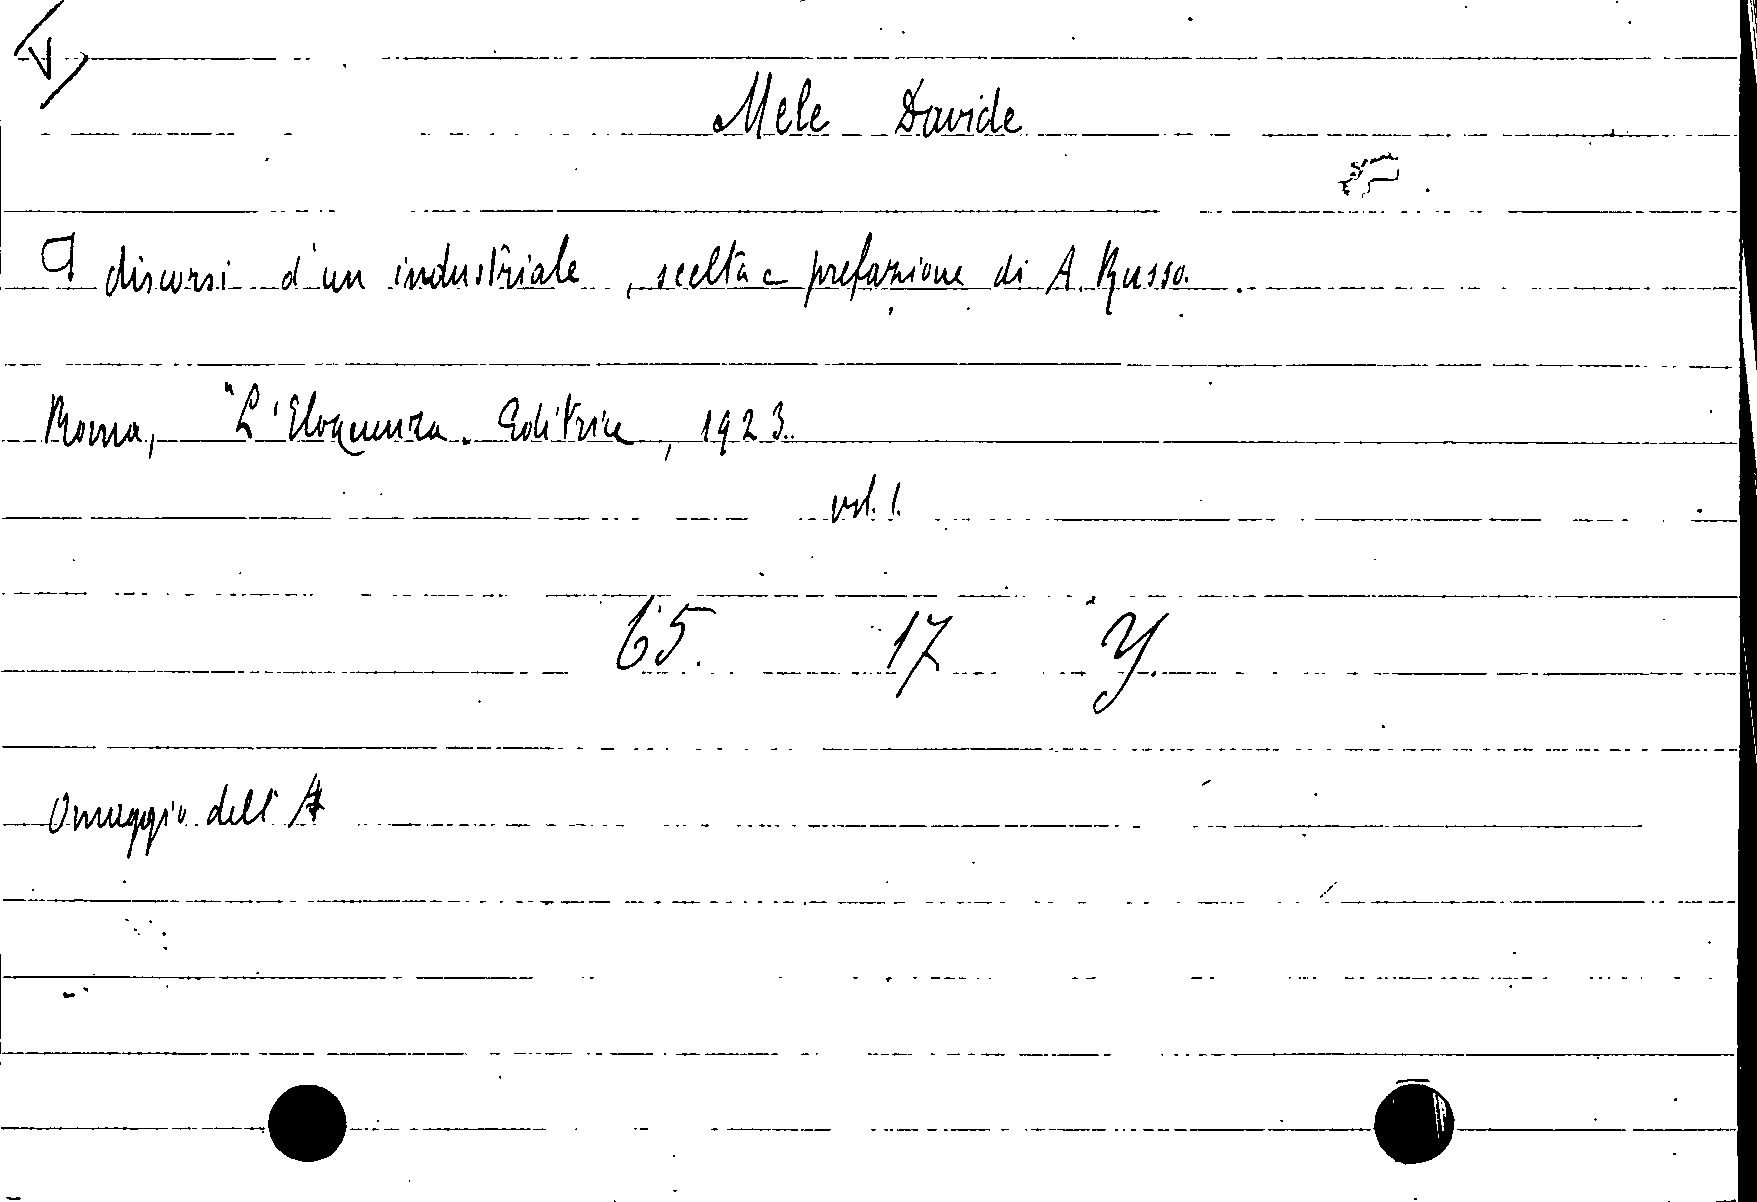 V
Mele Davide
I discorsi d'un industriale, scelta e prefazione di A. Russo.
Roma, "L'Eloquenza. Editrice, 1923.
vol. 1.
65. 17 Y.
Omaggio dell'A